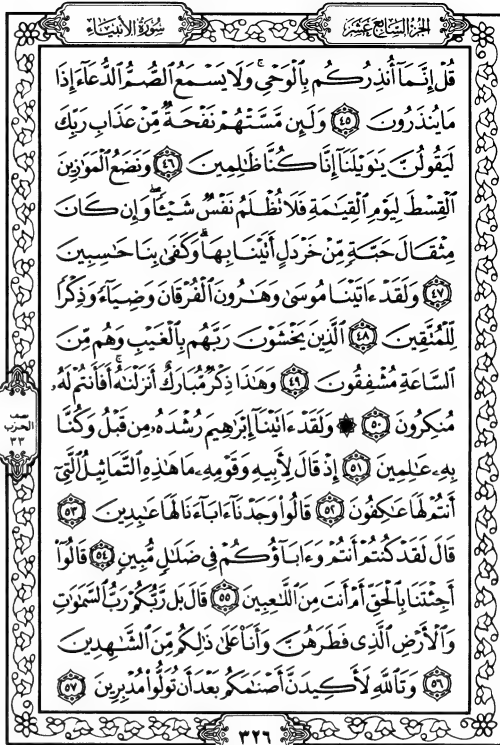 الجزء السابع عشر
سورة الأنبياء
قُلْ إِنَّمَآ أُنذِرُكُم بِالْوَحْيِ ۚ وَلَا يَسْمَعُ الصُّمُّ الدُّعَآءَ إِذَا
مَا يُنذَرُونَ ٤٥ وَلَئِن مَّسَّتْهُمْ نَفْحَةٌ مِّنْ عَذَابِ رَبِّكَ
لَيَقُولُنَّ يَٰوَيْلَنَآ إِنَّا كُنَّا ظَٰلِمِينَ ٤٦ وَنَضَعُ الْمَوَٰزِينَ
الْقِسْطَ لِيَوْمِ الْقِيَٰمَةِ فَلَا تُظْلَمُ نَفْسٌ شَيْـًٔا ۖ وَإِن كَانَ
مِثْقَالَ حَبَّةٍ مِّنْ خَرْدَلٍ أَتَيْنَا بِهَا ۗ وَكَفَىٰ بِنَا حَٰسِبِينَ
٤٧ وَلَقَدْ ءَاتَيْنَا مُوسَىٰ وَهَٰرُونَ الْفُرْقَانَ وَضِيَآءً وَذِكْرًا
لِّلْمُتَّقِينَ ٤٨ الَّذِينَ يَخْشَوْنَ رَبَّهُم بِالْغَيْبِ وَهُم مِّنَ
السَّاعَةِ مُشْفِقُونَ ٤٩ وَهَٰذَا ذِكْرٌ مُّبَارَكٌ أَنزَلْنَٰهُ ۚ أَفَأَنتُمْ لَهُۥ
مُنكِرُونَ ٥٠ ۞ وَلَقَدْ ءَاتَيْنَآ إِبْرَٰهِيمَ رُشْدَهُۥ مِن قَبْلُ وَكُنَّا
بِهِۦ عَٰلِمِينَ ٥١ إِذْ قَالَ لِأَبِيهِ وَقَوْمِهِۦ مَا هَٰذِهِ التَّمَاثِيلُ الَّتِىٓ
أَنتُمْ لَهَا عَٰكِفُونَ ٥٢ قَالُوا۟ وَجَدْنَآ ءَابَآءَنَا لَهَا عَٰبِدِينَ ٥٣
قَالَ لَقَدْ كُنتُمْ أَنتُمْ وَءَابَآؤُكُمْ فِى ضَلَٰلٍ مُّبِينٍ ٥٤ قَالُوٓا۟
أَجِئْتَنَا بِالْحَقِّ أَمْ أَنتَ مِنَ اللَّٰعِبِينَ ٥٥ قَالَ بَل رَّبُّكُمْ رَبُّ السَّمَٰوَٰتِ
وَالْأَرْضِ الَّذِى فَطَرَهُنَّ وَأَنَا۠ عَلَىٰ ذَٰلِكُم مِّنَ الشَّٰهِدِينَ
٥٦ وَتَاللَّهِ لَأَكِيدَنَّ أَصْنَٰمَكُم بَعْدَ أَن تُوَلُّوا۟ مُدْبِرِينَ ٥٧
نصف
الحزب
٣٣
٣٢٦